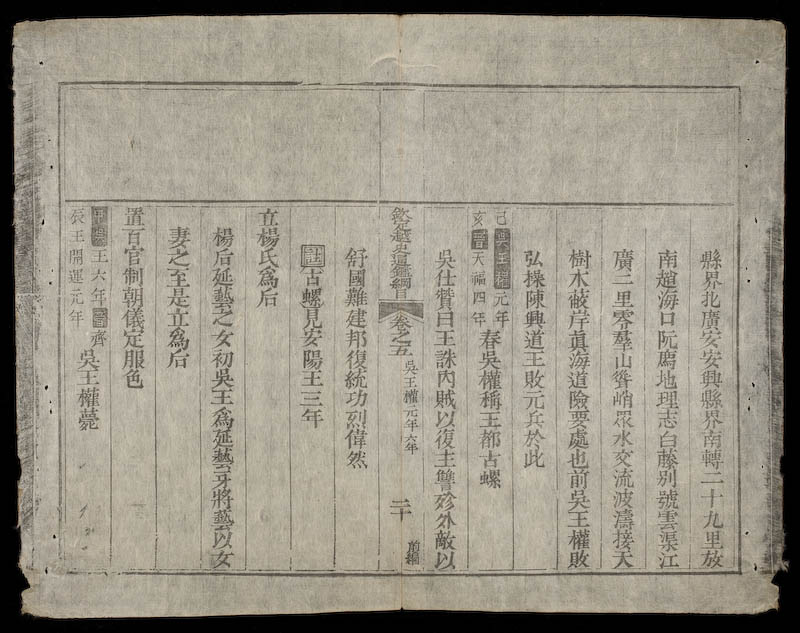 縣界北廣安安興縣界南轉二十九里放
南趙海口阮廌地理志白藤别號雲渠江
廣二里零羣山聳峭眾水交流波濤接天
樹木蔽岸眞海道險要處也前吳王權敗
弘操陳興道王敗元兵於此
己吳王權元年
亥晋天福四年
春吳權稱王都古螺
吳仕贊曰王誅內賊以復主讐殄外敵以
欽定越史通鑑綱目 卷之五 吳王權元年六年 二十 前編
舒國難建邦復統功烈偉然
註古螺見安陽王三年
立楊氏爲后
楊后延藝之女初吳王爲延藝牙將藝以女
妻之至是立爲后
置百官制朝儀定服色
王六年晋齊
辰王開運元年
吳王權薨